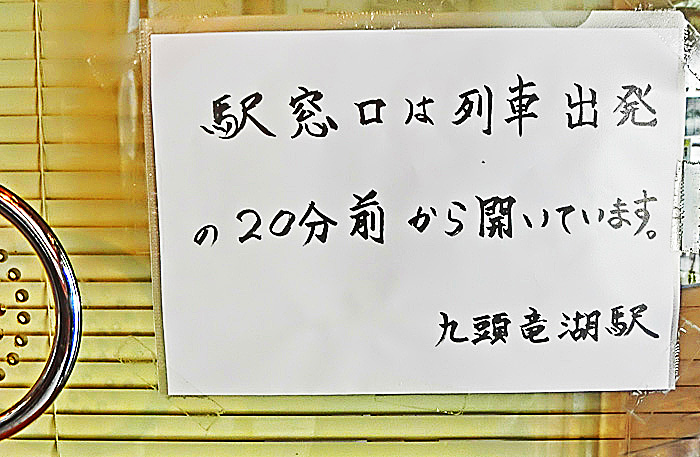 駅窓口は列車出発
の20分前から開いています。
九頭竜湖駅